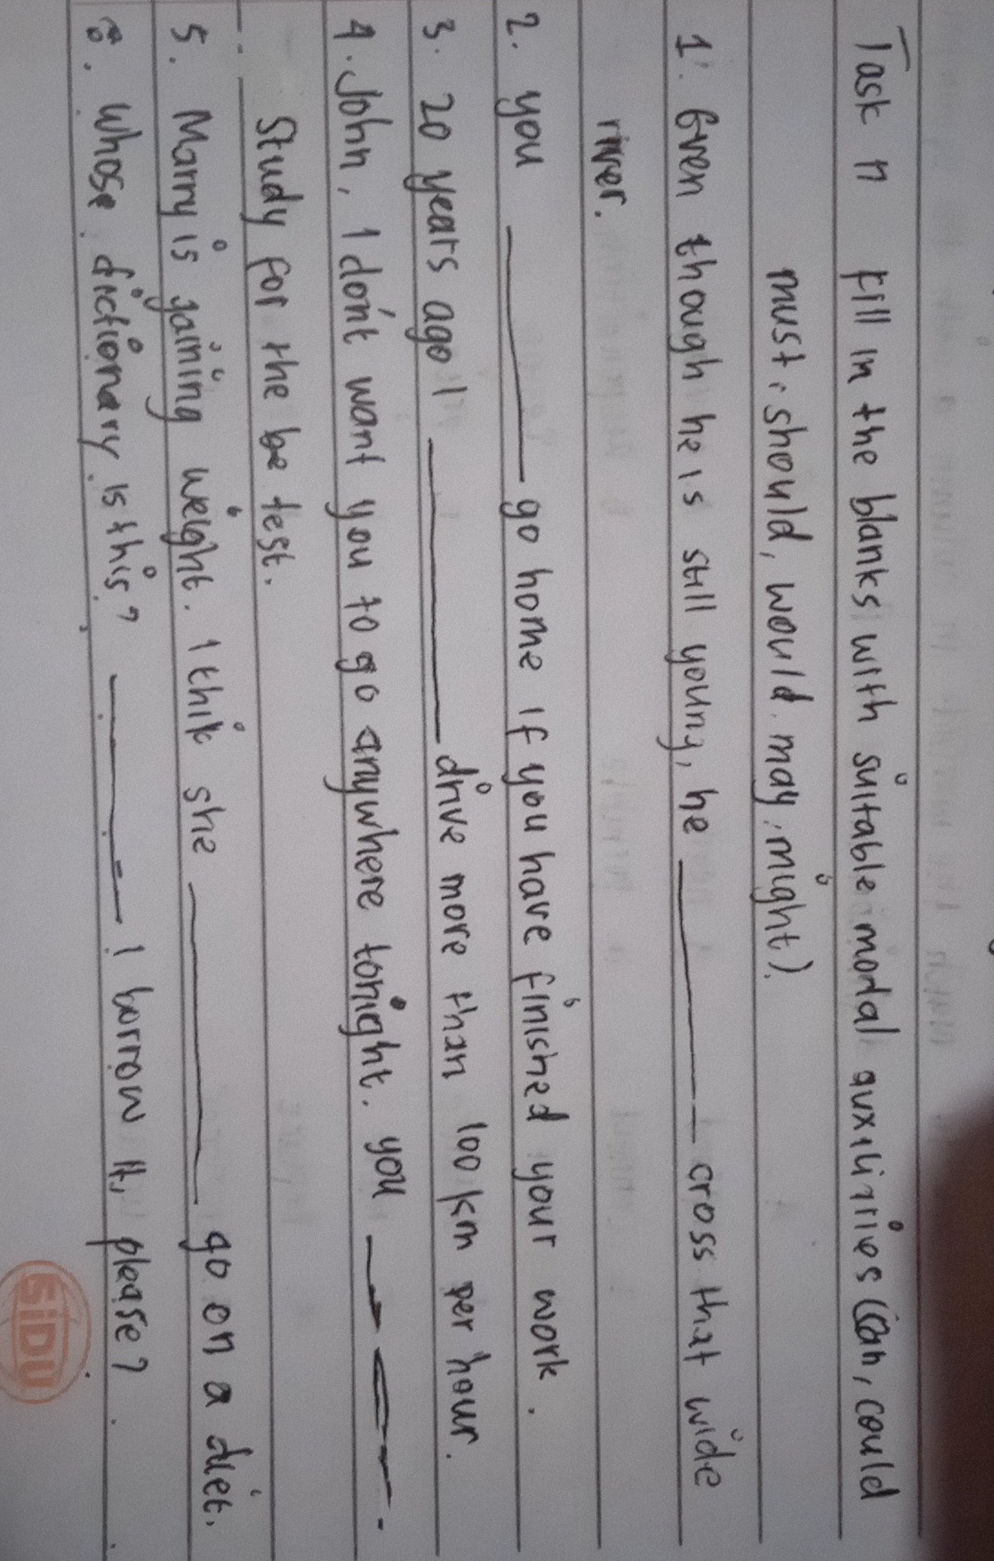 Task n fill in the blanks with suitable modal auxiliries (can, could
must, should, would, may, might).
1. Even though he is still young, he ________ cross that wide
river.
2. you ________ go home if you have finished your work.
3. 20 years ago I ________ drive more than 100 km per hour.
4. John, I don't want you to go anywhere tonight. you ________
Study for the be test.
5. Marry is gaining weight. I thik she ________ go on a diet.
6. Whose dictionary is this? ________ I borrow it, please?
SiDU